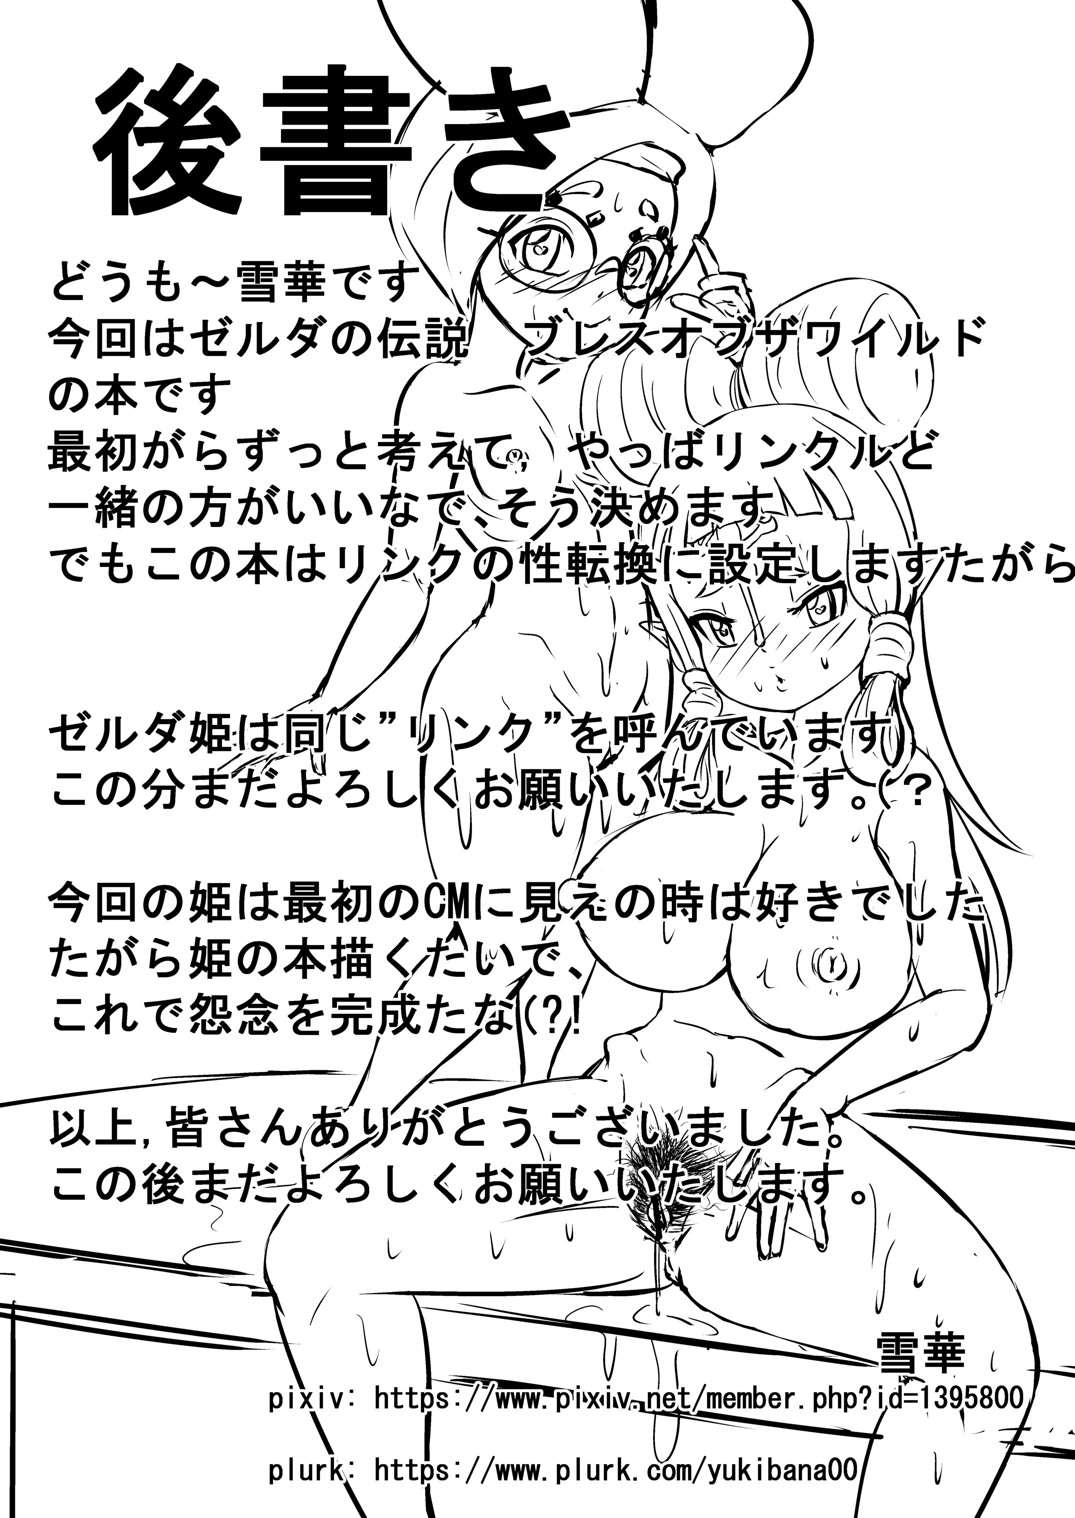 後書き
どうも～雪華です
今回はゼルダの伝説　ブレスオブザワイルド
の本です
最初がらずっと考えて,　やっぱリンクルど
一緒の方がいいなで､そう決めます
でもこの本はリンクの性転換に設定しますたがら
ゼルダ姫は同じ”リンク”を呼んでいます
この分まだよろしくお願いいたします。(？
今回の姫は最初のCMに見えの時は好きでした
たがら姫の本描くたいで､
これで怨念を完成たな(?!
以上,皆さんありがとうございました。
この後まだよろしくお願いいたします。
雪華
pixiv: https://www.pixiv.net/member.php?id=1395800
plurk: https://www.plurk.com/yukibana00